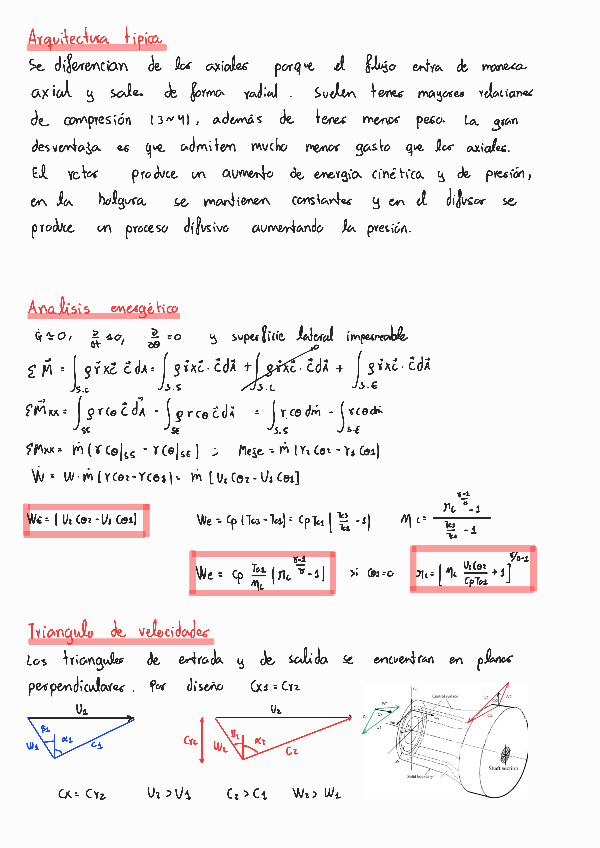 Arquitectura tipica
Se diferencian de los axiales porque el flujo entra de manera
axial y sale de forma radial. Suelen tener mayores relaciones
de compresión (3~4), además de tener menor peso. La gran
desventaja es que admiten mucho menor gasto que los axiales.
El rotor produce un aumento de energia cinética y de presión,
en la holgura se mantienen constantes y en el difusor se
produce un proceso difusivo aumentando la presión.
Analisis energético
∂/∂θ = 0 y superficie lateral impermeable
Σ M⃗ = ∫S.C ρ r⃗×c⃗ · c⃗ dA⃗ = ∫S.S ρ r⃗×c⃗ · c⃗ dA⃗ + ∫S.L ρ r⃗×c⃗ · c⃗ dA⃗ + ∫S.E ρ r⃗×c⃗ · c⃗ dA⃗
ΣMxx = ∫SS ρ r cθ c⃗ dA⃗ - ∫SE ρ r cθ c⃗ dA⃗ = ∫S.S r cθ dṁ - ∫S.E r cθ dṁ
ΣMxx = ṁ (r cθ|SS - r cθ|SE) ; Meje = ṁ (r2 cθ2 - r1 cθ1)
Ẇ = W · ṁ (r cθ2 - r cθ1) = ṁ [U2 cθ2 - U1 cθ1]
Wc = (U2 cθ2 - U1 cθ1) Wc = cp (T03 - T01) = cp T01 (T03/T01 - 1) ηc = (πc^(γ-1/γ) - 1) / (T03/T01 - 1)
Wc = cp T01/ηc (πc^(γ-1/γ) - 1) si cθ1=0 πc = [ηc U2 cθ2/cp T01 + 1]^(γ/γ-1)
Triangulo de velocidades
Los triangulos de entrada y de salida se encuentran en planos
perpendiculares. Por diseño Cx1 = Cr2
U1
β1 α1
W1 C1
U2
Cr2
β2 α2
W2 C2
Control surface
Shaft section
Solid boundary
Cx = Cr2 U2 > U1 C2 > C1 W2 > W1